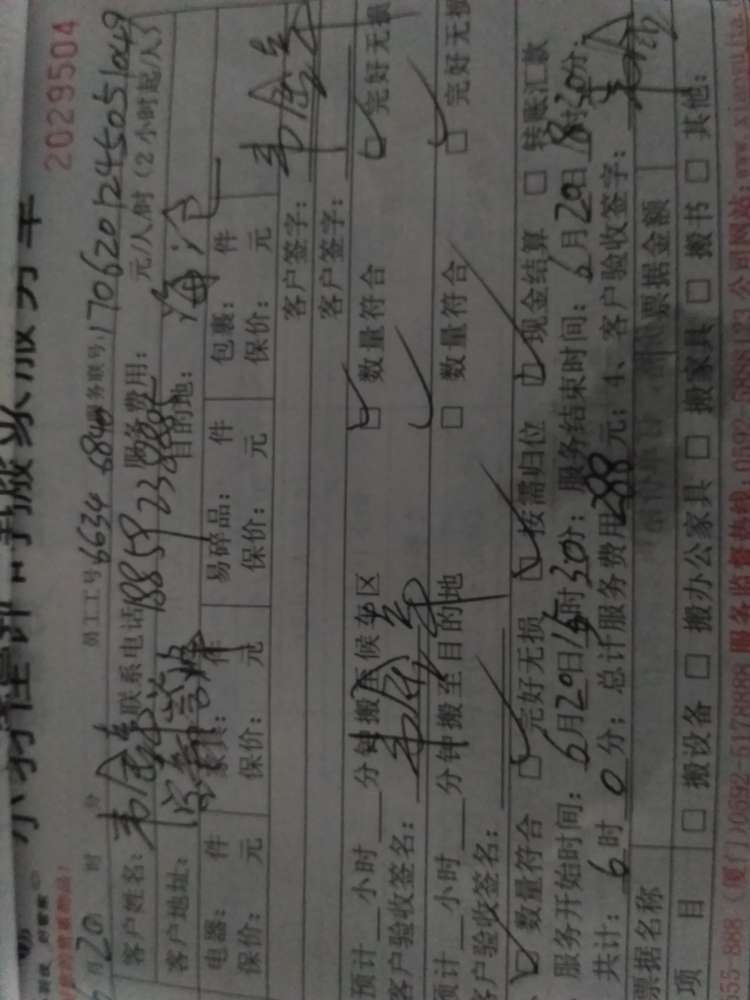 2029504
月20 时 分 员工工号 6634 6840 服务联号: 170620124505 1049
客户姓名: 联系电话 18859238805 服务费用: 元/人/时 (2小时起/人)
客户地址: 目的地: 海沧
电器: 件 家具: 件 易碎品: 件 包裹: 件
保价: 元 保价: 元 保价: 元 保价: 元
客户签字:
客户签字:
预计 小时 分钟搬至候车区 数量符合 完好无损
客户验收签名:
预计 小时 分钟搬至目的地 数量符合 完好无损
客户验收签名:
数量符合 完好无损 按需归位 现金结算 转账汇款
服务开始时间: 6月20日 时30分; 服务结束时间: 6月20日 时30分;
共计: 6时0分; 总计服务费用288元; 4、客户验收签字:
票据名称 票据金额
项目 搬设备 搬办公家具 搬家具 搬书 其他:
55-888 (厦门)0592-5178888 服务监督热线: 公司网站: